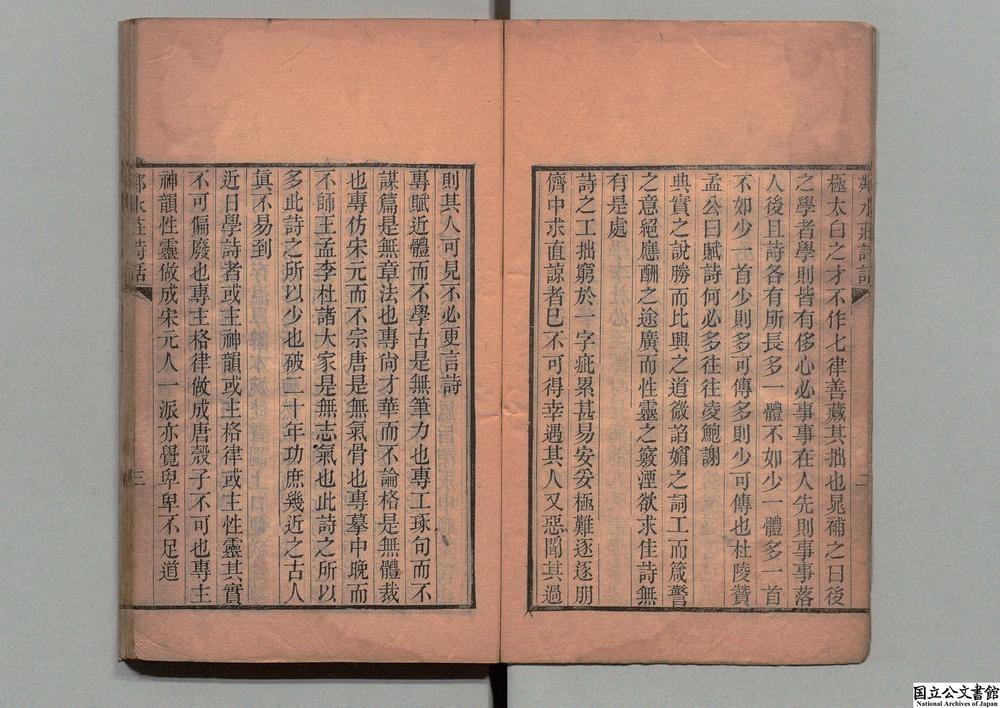 極太白之才不作七律善藏其拙也晁補之曰後
之學者學則皆有侈心必事事在人先則事事落
人後且詩各有所長多一體不如少一體多一首
不如少一首少則多可傳多則少可傳也杜陵贊
孟公曰賦詩何必多往往凌鮑謝
典實之說勝而比興之道微諂媚之詞工而箴警
之意絕應酬之途廣而性靈之竅湮欲求佳詩無
有是處
詩之工拙窮於一字疵累甚易安妥極難逐逐朋
儕中求直諒者已不可得幸遇其人又惡聞其過
則其人可見不必更言詩
專賦近體而不學古是無筆力也專工琢句而不
謀篇是無章法也專尙才華而不論格是無體裁
也專仿宋元而不宗唐是無氣骨也專摹中晚而
不師王孟李杜諸大家是無志氣也此詩之所以
多此詩之所以少也破二十年功庶幾近之古人
眞不易到
近日學詩者或主神韻或主格律或主性靈其實
不可偏廢也專主格律做成唐殼子不可也專主
神韻性靈做成宋元人一派亦覺卑卑不足道
水莊詩話
三
国立公文書館
National Archives of Japan